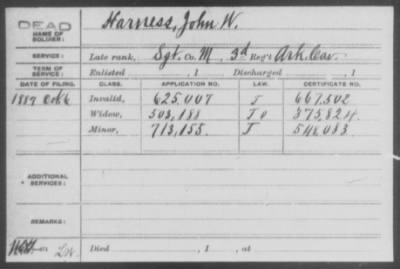 DEAD
NAME OF SOLDIER:
Harness, John W.
SERVICE:
Late rank, Sgt. Co. M, 3d Reg't Ark. Cav.
TERM OF SERVICE:
Enlisted , 1 Discharged , 1
DATE OF FILING. CLASS. APPLICATION NO. LAW. CERTIFICATE NO.
Invalid, 625,007 J 667,502
Widow, J
Minor, 713,155 J 548,083
ADDITIONAL SERVICES:
REMARKS:
Died , 1 , at